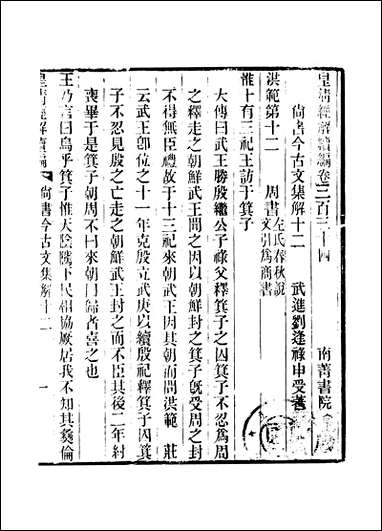 皇清經解續編卷三百三十四　南菁書院
尚書今古文集解十二　武進劉逢祿申受著
洪範第十二　周書左氏春秋說文引爲商書
惟十有三祀王訪于箕子
大傳曰武王勝殷繼公子祿父釋箕子之囚箕子不忍爲周
之釋走之朝鮮武王聞之因以朝鮮封之箕子旣受周之封
不得無臣禮故于十三祀來朝武王因其朝而問洪範　莊
云武王卽位之十一年克殷立武庚以續殷祀釋箕子囚箕
子不忍見殷之亡走之朝鮮武王封之而不臣其後二年紂
喪畢于是箕子朝周不曰來朝曰歸者喜之也
王乃言曰烏乎箕子惟天陰隲下民相協厥居我不知其彝倫
皇清經解續編　尚書今古文集解十二　一